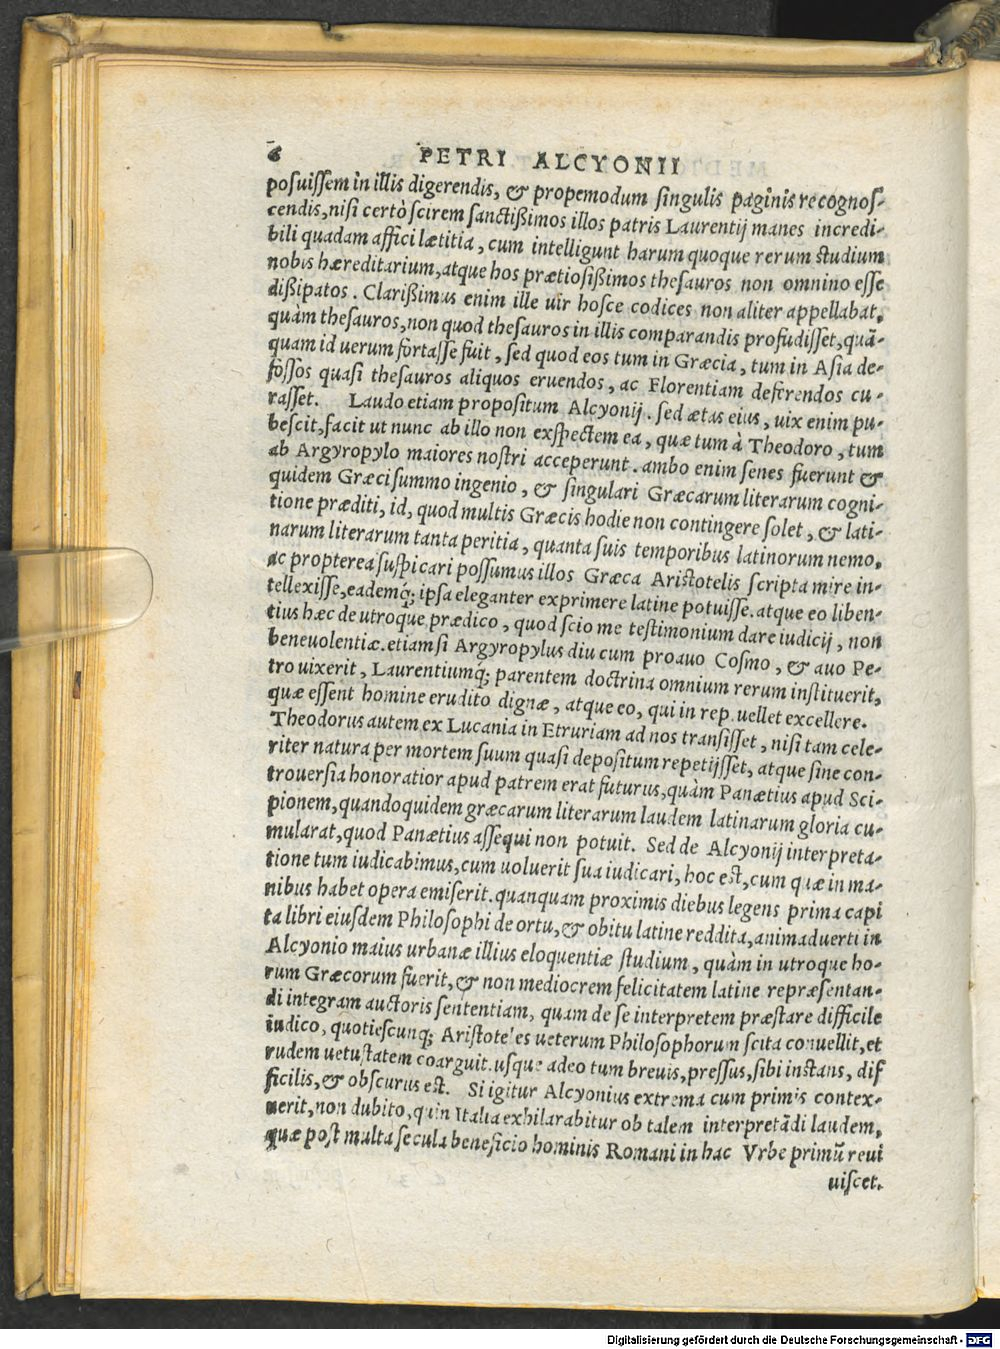 6 PETRI ALCYONII
posuissem in illis digerendis, & propemodum singulis paginis recognos-
cendis, nisi certò scirem sanctißimos illos patris Laurentij manes incredi-
bili quadam affici lætitia, cum intelligunt harum quoque rerum studium
nobis hæreditarium, atque hos prætiosißimos thesauros non omnino esse
dißipatos. Clarißimus enim ille uir hosce codices non aliter appellabat,
quàm thesauros, non quod thesauros in illis comparandis profudisset, quã-
quam id uerum fortasse fuit, sed quod eos tum in Græcia, tum in Asia de-
fossos quasi thesauros aliquos eruendos, ac Florentiam deferendos cu-
rasset. Laudo etiam propositum Alcyonij. sed ætas eius, uix enim pu-
bescit, facit ut nunc ab illo non exspectem ea, quæ tum à Theodoro, tum
ab Argyropylo maiores nostri acceperunt. ambo enim senes fuerunt &
quidem Græci summo ingenio, & singulari Græcarum literarum cogni-
tione præditi, id, quod multis Græcis hodie non contingere solet, & lati-
narum literarum tanta peritia, quanta suis temporibus latinorum nemo,
ac propterea suspicari possumus illos Græca Aristotelis scripta mire in-
tellexisse, eademq; ipsa eleganter exprimere latine potuisse. atque eo liben-
tius hæc de utroque prædico, quod scio me testimonium dare iudicij, non
beneuolentiæ. etiamsi Argyropylus diu cum proauo Cosmo, & auo Pe-
tro uixerit, Laurentiumq; parentem doctrina omnium rerum instituerit,
quæ essent homine erudito dignæ, atque eo, qui in rep. uellet excellere.
Theodorus autem ex Lucania in Etruriam ad nos transisset, nisi tam cele-
riter natura per mortem suum quasi depositum repetijsset, atque sine con-
trouersia honoratior apud patrem erat futurus, quàm Panætius apud Sci-
pionem, quandoquidem græcarum literarum laudem latinarum gloria cu-
mularat, quod Panætius assequi non potuit. Sed de Alcyonij interpreta-
tione tum iudicabimus, cum uoluerit sua iudicari, hoc est, cum quæ in ma-
nibus habet opera emiserit. quanquam proximis diebus legens prima capi
ta libri eiusdem Philosophi de ortu, & obitu latine reddita, animaduerti in
Alcyonio maius urbanæ illius eloquentiæ studium, quàm in utroque ho-
rum Græcorum fuerit, & non mediocrem felicitatem latine repræsentan-
di integram auctoris sententiam, quam de se interpretem præstare difficile
iudico, quotiescunq; Aristoteles ueterum Philosophorum scita conuellit, et
rudem uetustatem coarguit. usque adeo tum breuis, pressus, sibi instans, dif
ficilis, & obscurus est. Si igitur Alcyonius extrema cum primis contex-
uerit, non dubito, quin Italia exhilarabitur ob talem interpretãdi laudem,
quæ post multa secula beneficio hominis Romani in hac Vrbe primũ reui
uiscet.
Digitalisierung gefördert durch die Deutsche Forschungsgemeinschaft - DFG